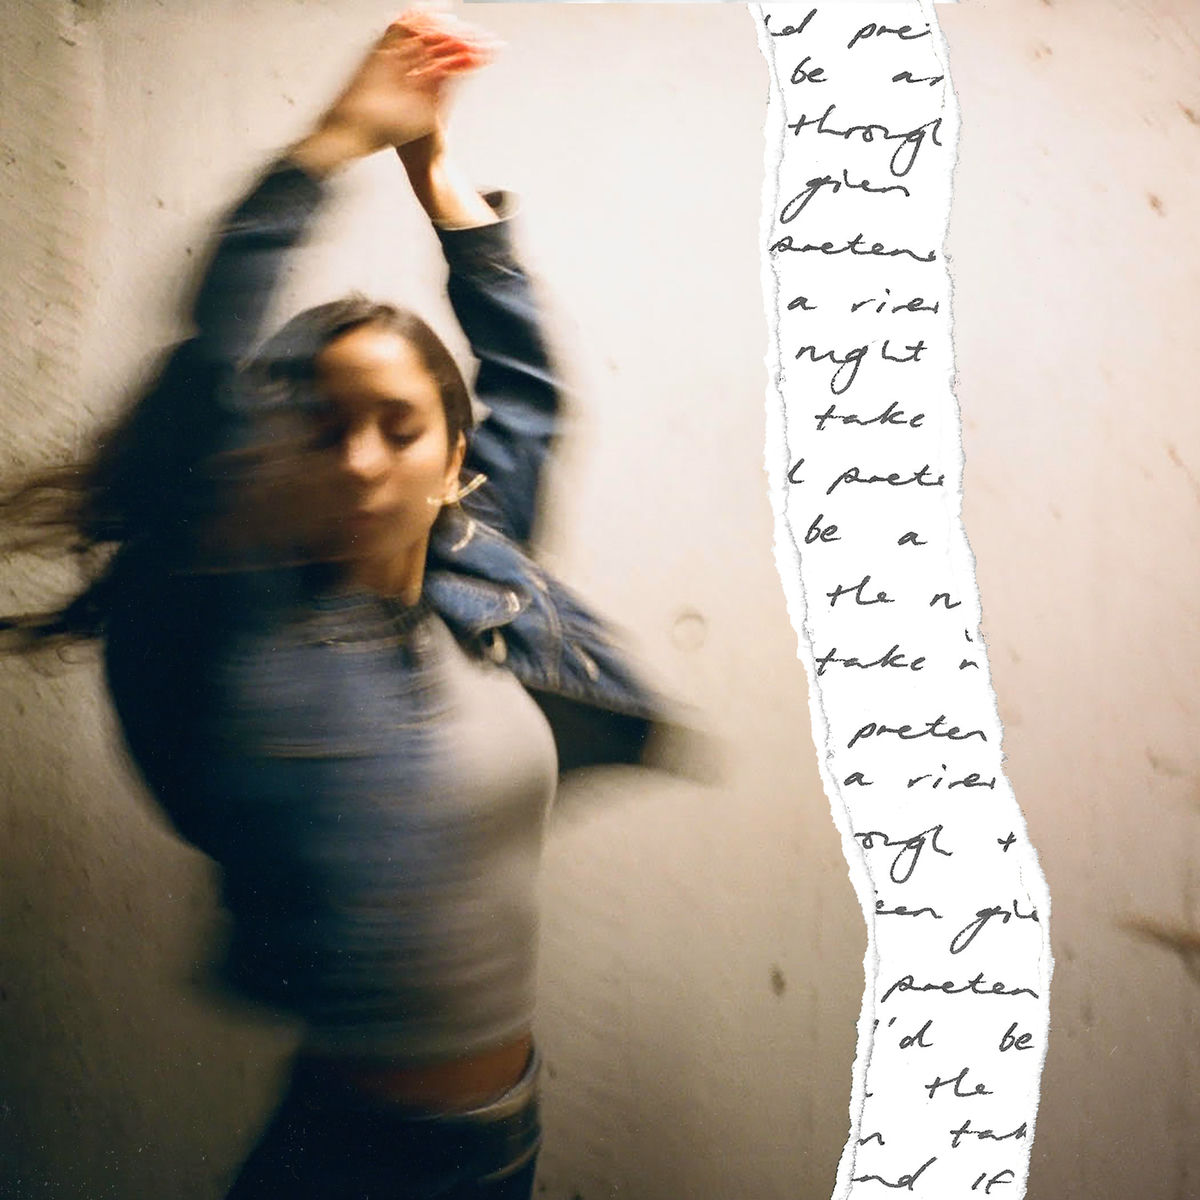 d pre
be a
through
given
preten
a river
night
take
I prete
be a
the n
take i
preten
a river
ough t
een give
preten
I'd be
the
n tak
and if